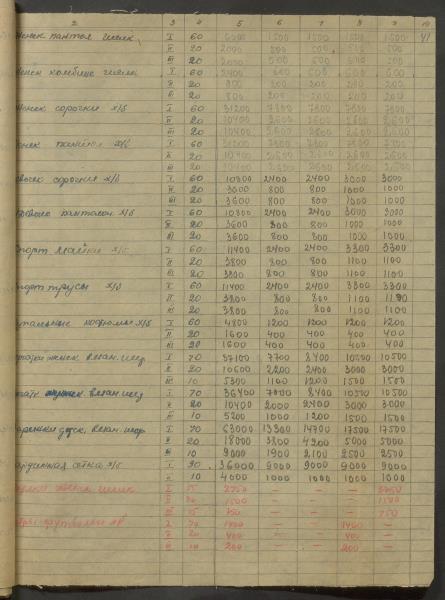 2 3 4 5 6 7 8 9 10
женск панталон шелк I 60 6000 1500 1500 1500 1500 41
II 20 2000 500 500 500 500
III 20 2000 500 500 500 500
женск комбине шелк I 60 2400 600 600 600 600
II 20 800 200 200 200 200
III 20 800 200 200 200 200
женск сорочки х/б I 60 31200 7800 7800 7800 7800
II 20 10400 2600 2600 2600 2600
III 20 10400 2600 2600 2600 2600
I 60 31200 7800 7800 7800 7800
II 20 10400 2600 2600 2600 2600
III 20 10400 2600 2600 2600 2600
сорочки х/б I 60 10800 2400 2400 3000 3000
II 20 3600 800 800 1000 1000
III 20 3600 800 800 1000 1000
панталон х/б I 60 10800 2400 2400 3000 3000
II 20 3600 800 800 1000 1000
III 20 3600 800 800 1000 1000
спорт майки х/б I 60 11400 2400 2400 3300 3300
II 20 3800 800 800 1100 1100
III 20 3800 800 800 1100 1100
спорт трусы х/б I 60 11400 2400 2400 3300 3300
II 20 3800 800 800 1100 1100
III 20 3800 800 800 1100 1100
купальные костюмы х/б I 60 4800 1200 1200 1200 1200
II 20 1600 400 400 400 400
III 20 1600 400 400 400 400
женск. I 70 37100 7700 8400 10500 10500
II 20 10600 2200 2400 3000 3000
III 10 5300 1100 1200 1500 1500
I 70 36400 7000 8400 10500 10500
II 20 10400 2000 2400 3000 3000
III 10 5200 1000 1200 1500 1500
I 70 63000 13300 14700 17500 17500
II 20 18000 3800 4200 5000 5000
III 10 9000 1900 2100 2500 2500
сетка х/б I 90 36000 9000 9000 9000 9000
II 10 4000 1000 1000 1000 1000
женск шелк I 3750 — — — 3750
II 1500 — — — 1500
III 750 — — — 750
I 70 1400 — — 1400 —
II 20 400 — — 400 —
III 10 200 — — 200 —